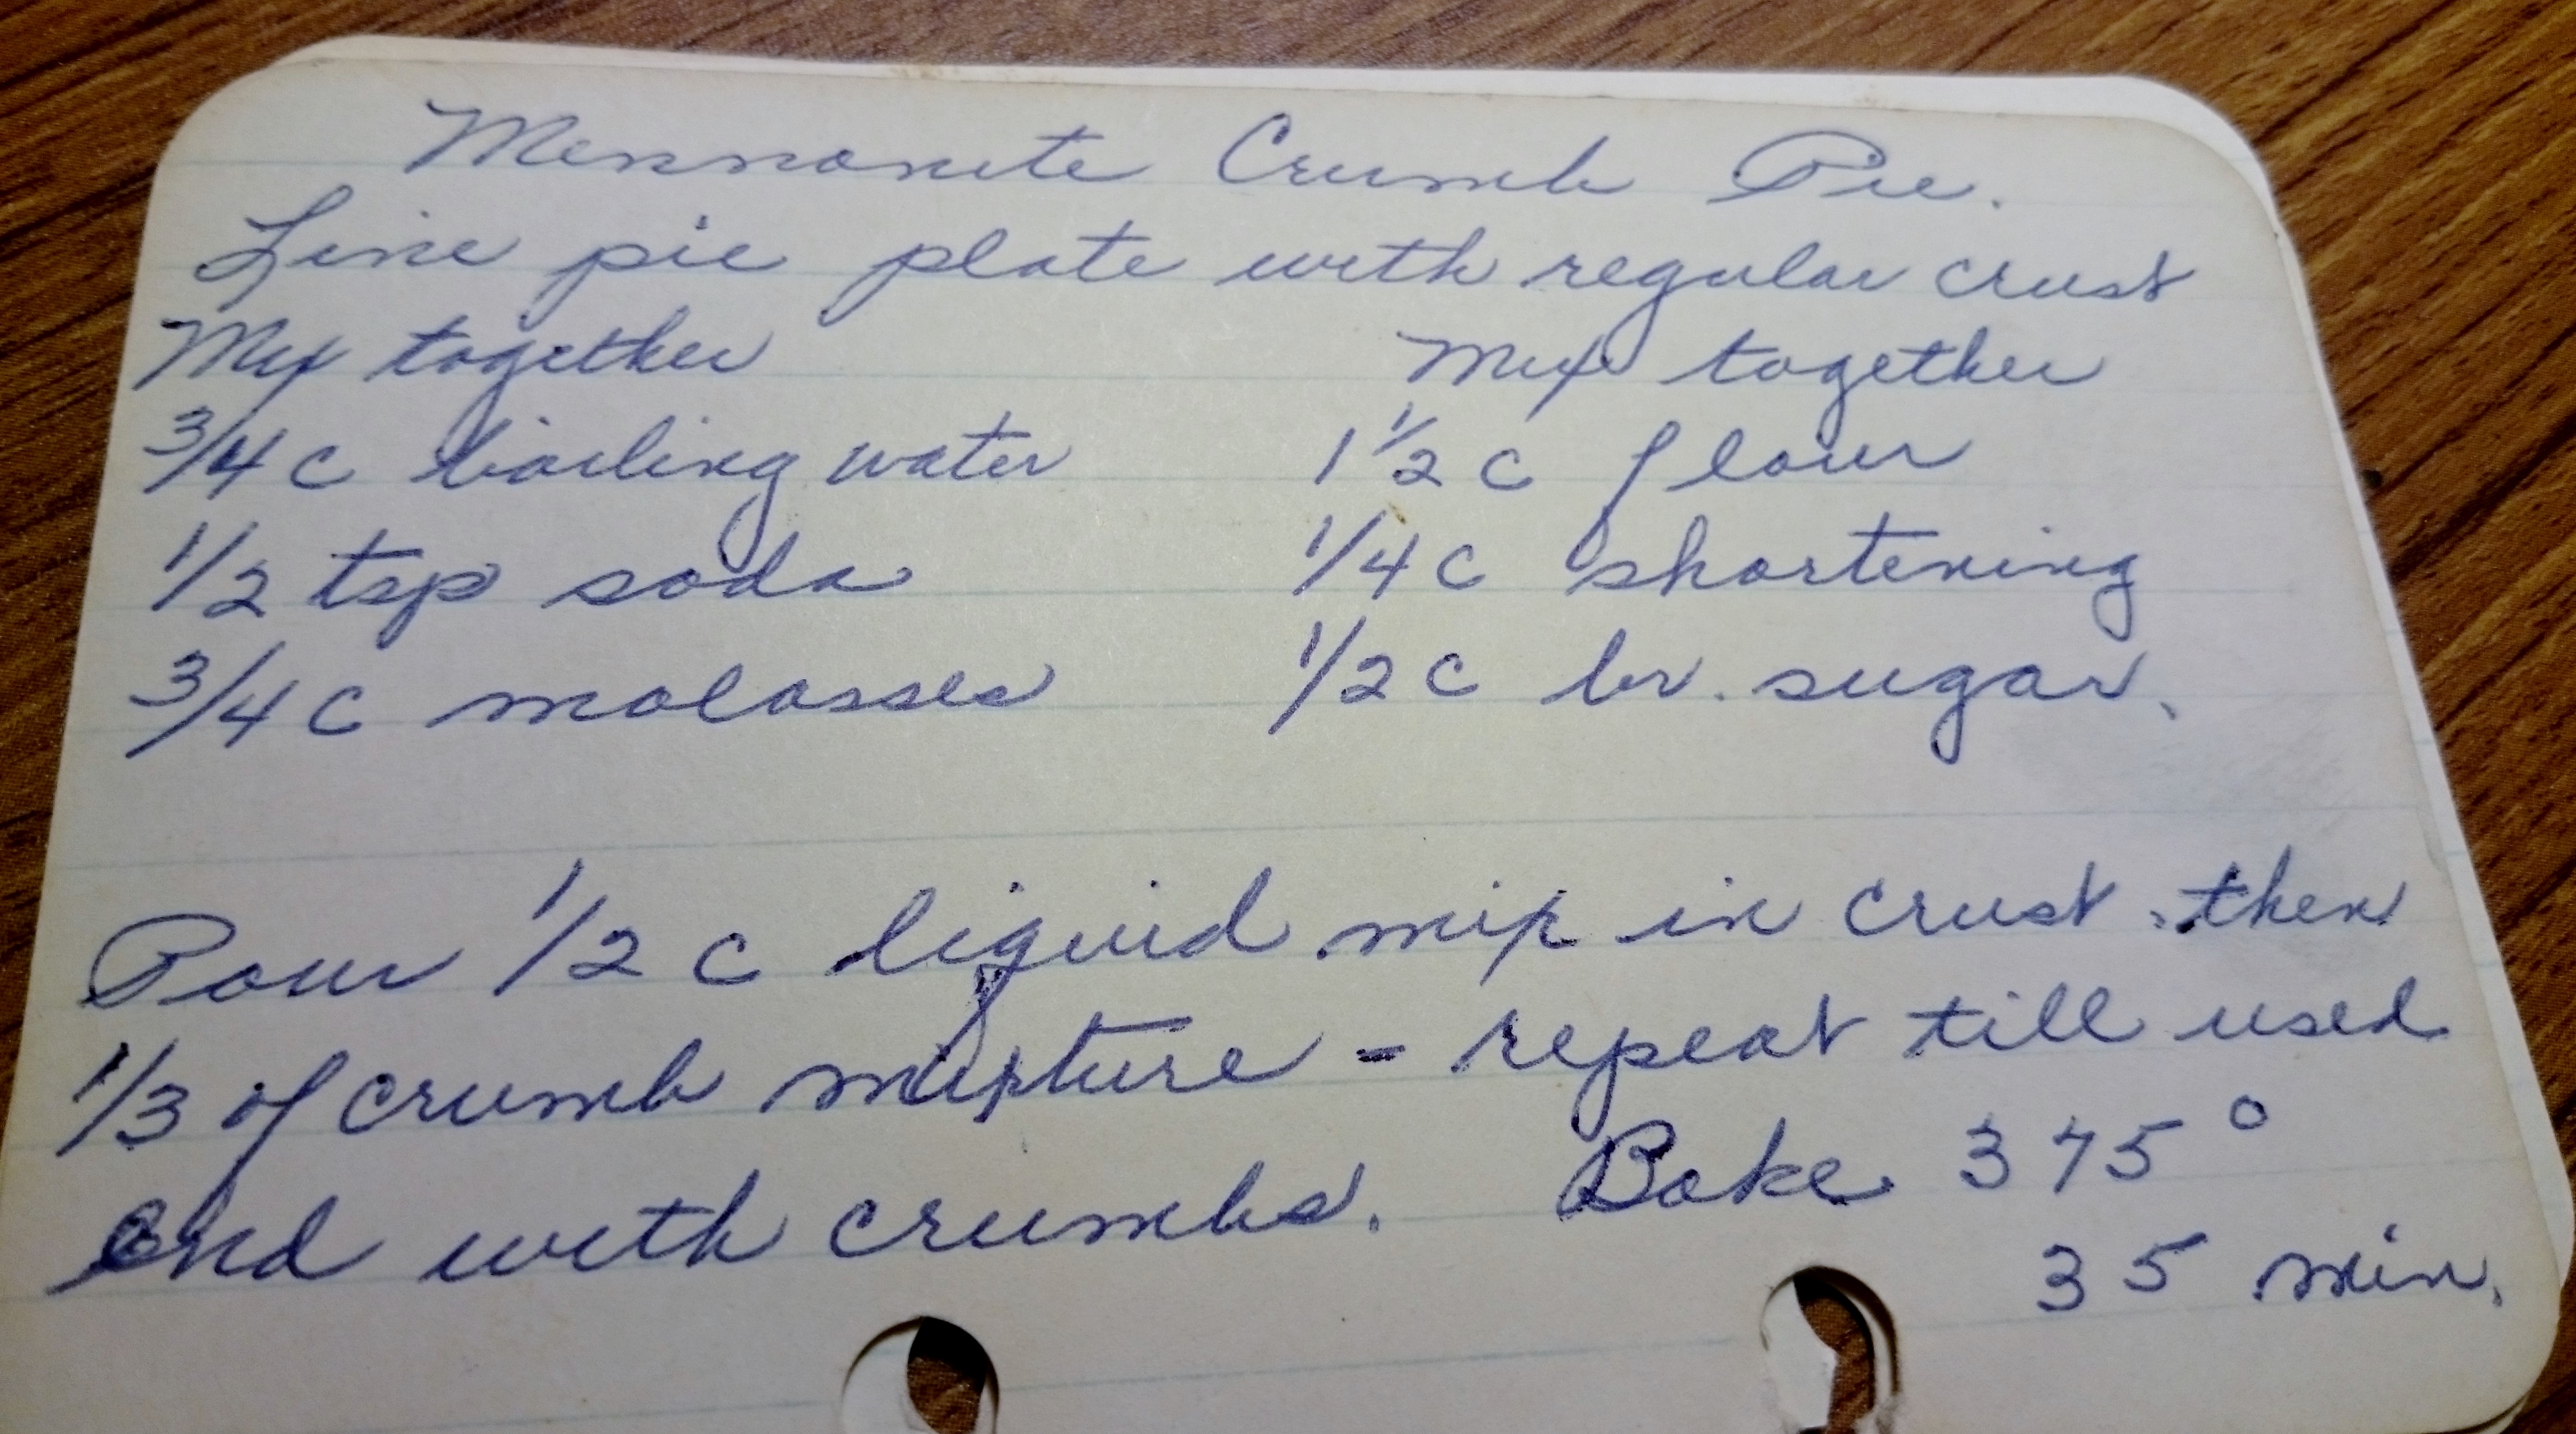 Mennonite Crumb Pie.
Line pie plate with regular crust
Mix together
3/4 c boiling water
1/2 tsp soda
3/4 c molasses
Mix together
1 1/2 c flour
1/4 c shortening
1/2 c br. sugar.
Pour 1/2 c liquid mix in crust, then
1/3 of crumb mixture - repeat till used
End with crumbs. Bake 375°
35 min.